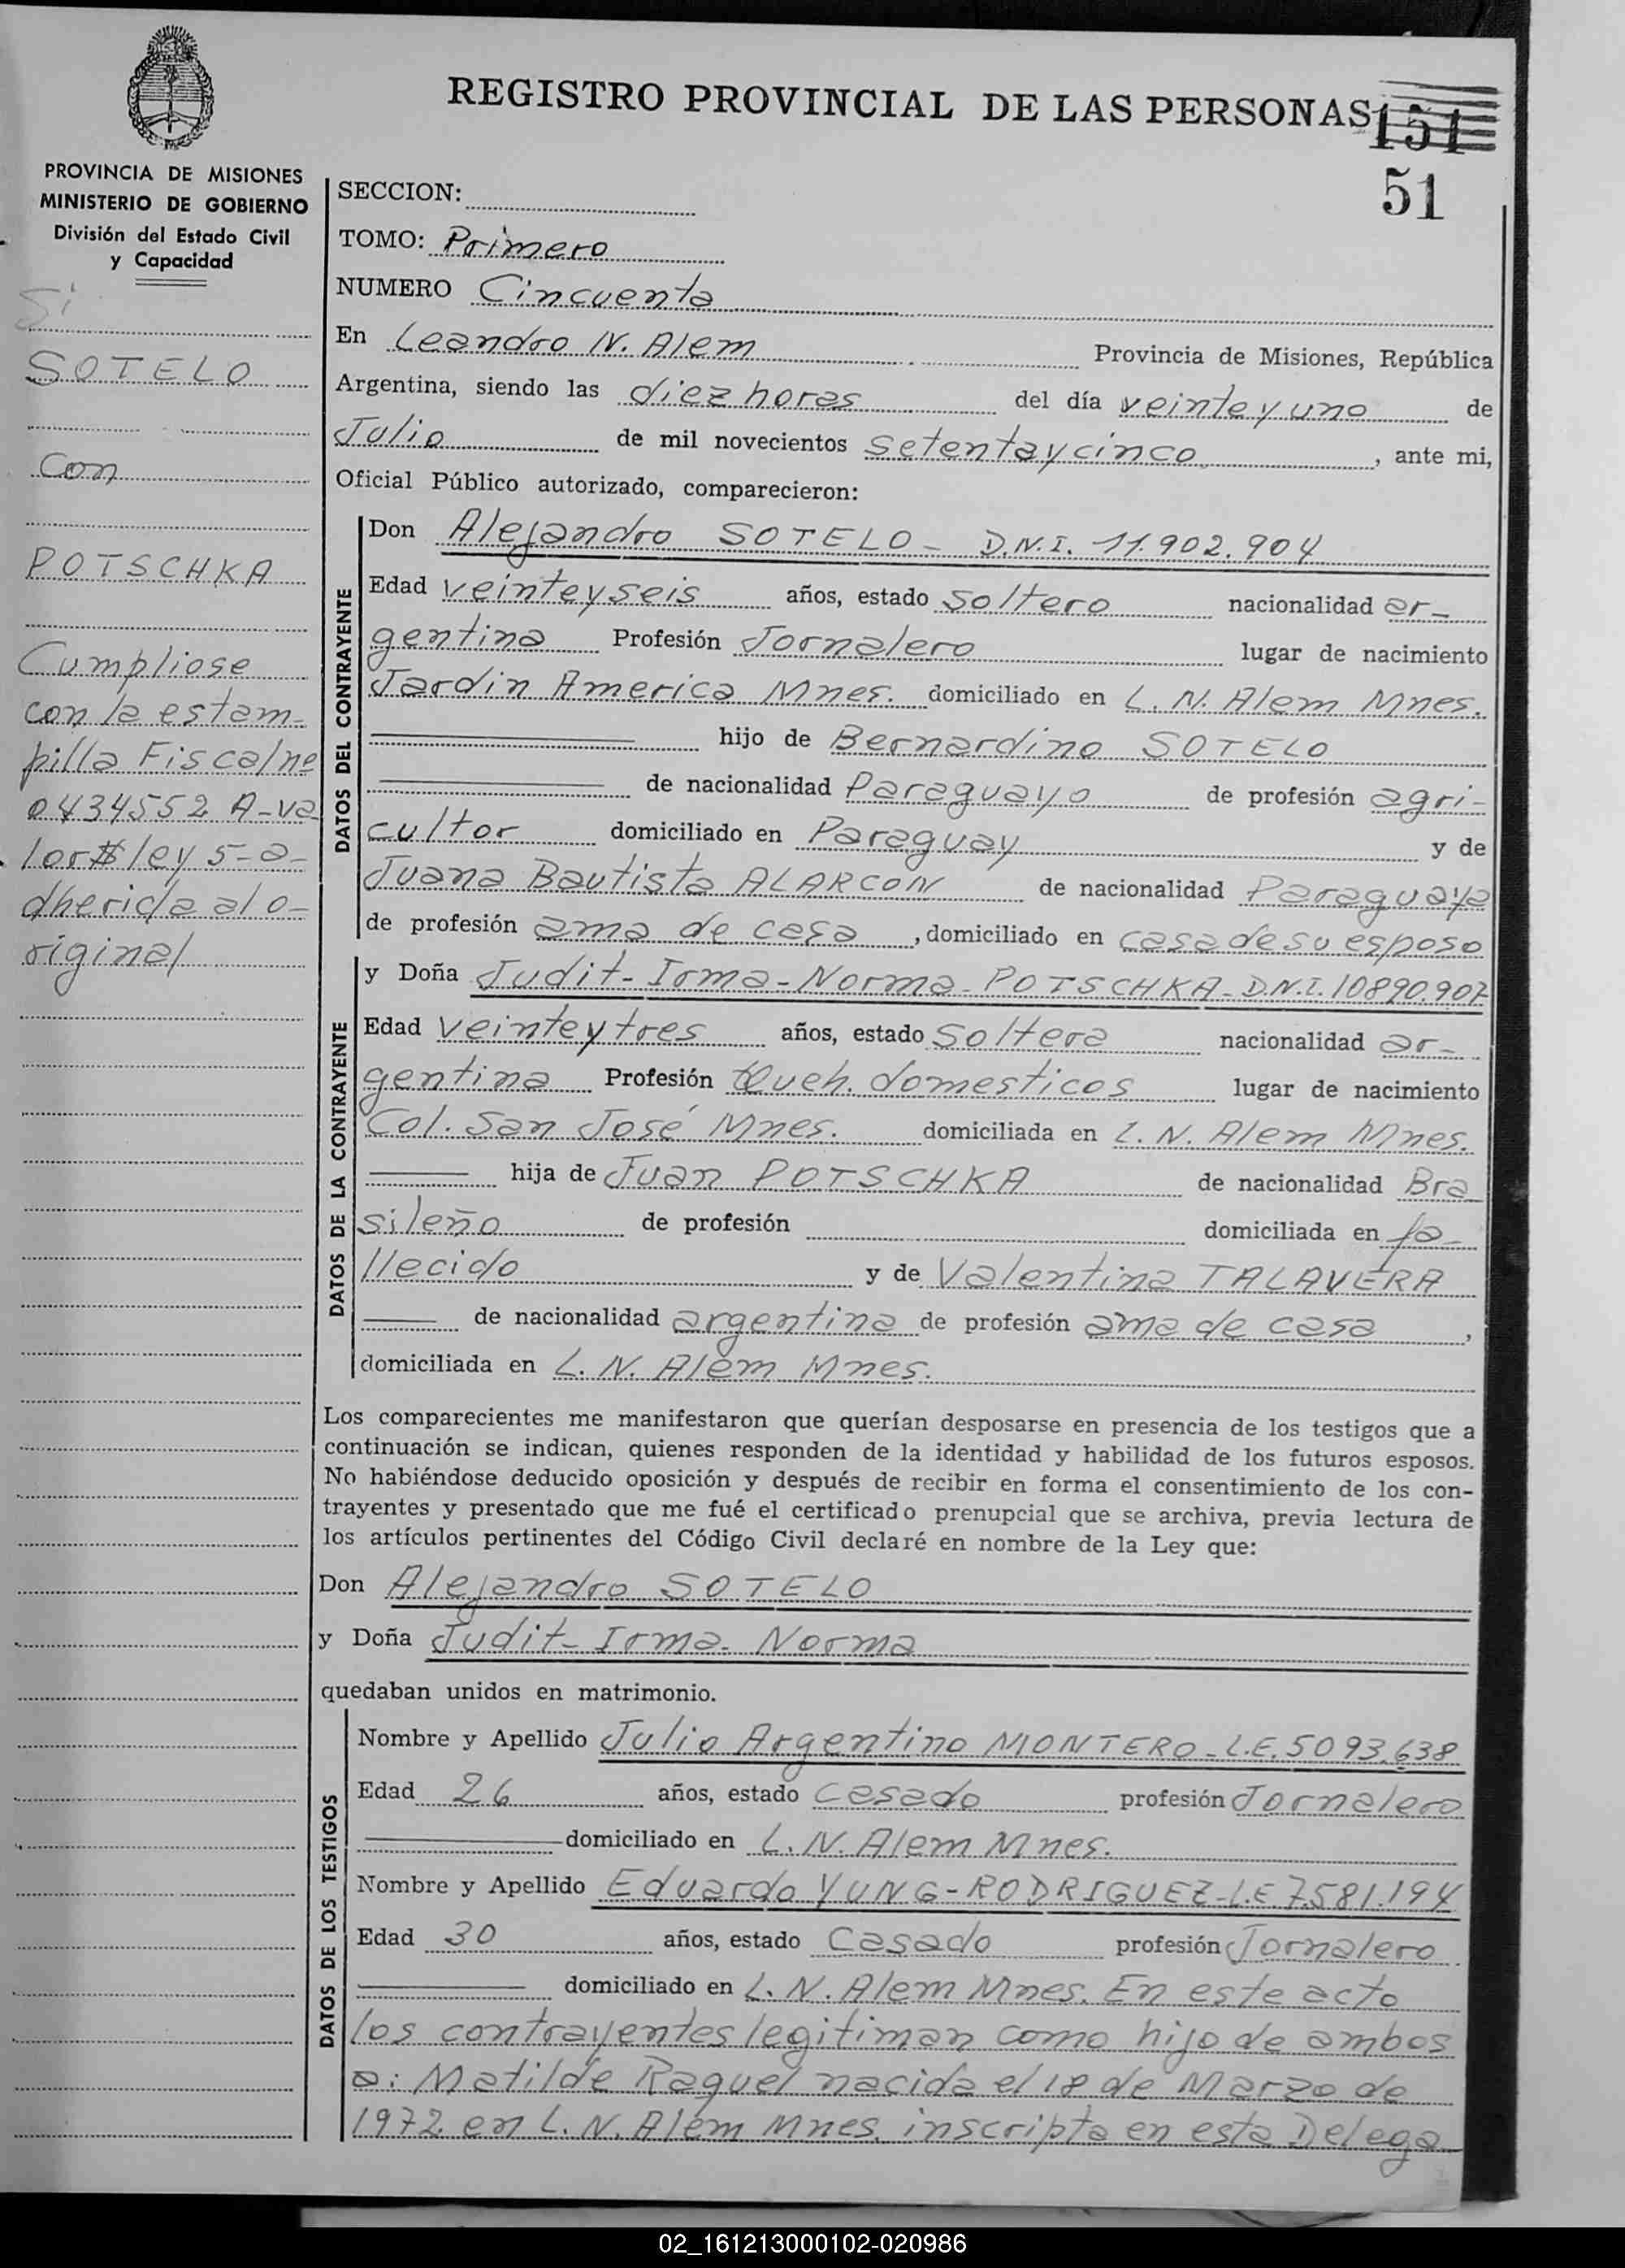 REGISTRO PROVINCIAL DE LAS PERSONAS
151
51
PROVINCIA DE MISIONES
MINISTERIO DE GOBIERNO
División del Estado Civil
y Capacidad
Si
SOTELO
con
POTSCHKA
Cumpliose
con la estam-
pilla Fiscal nº
0434552 A-va
lor $ ley 5-a-
dherida al o-
riginal
SECCION:
TOMO: Primero
NUMERO Cincuenta
En Leandro N. Alem Provincia de Misiones, República
Argentina, siendo las diez horas del día veinte y uno de
Julio de mil novecientos setenta y cinco, ante mi,
Oficial Público autorizado, comparecieron:
DATOS DEL CONTRAYENTE
Don Alejandro SOTELO - D.N.I. 11.902.904
Edad veinte y seis años, estado soltero nacionalidad ar-
gentina Profesión Jornalero lugar de nacimiento
Jardin America Mnes. domiciliado en L. N. Alem Mnes.
hijo de Bernardino SOTELO
de nacionalidad Paraguayo de profesión agri-
cultor domiciliado en Paraguay y de
Juana Bautista ALARCON de nacionalidad Paraguaya
de profesión ama de casa, domiciliado en casa de su esposo
DATOS DE LA CONTRAYENTE
y Doña Judit-Irma-Norma-POTSCHKA-D.N.I. 10890.907
Edad veinte y tres años, estado soltera nacionalidad ar-
gentina Profesión Queh. domesticos lugar de nacimiento
Col. San José Mnes. domiciliada en L. N. Alem Mnes.
hija de Juan POTSCHKA de nacionalidad Bra
sileño de profesión domiciliada en fa-
llecido y de Valentina TALAVERA
de nacionalidad argentina de profesión ama de casa,
domiciliada en L. N. Alem Mnes.
Los comparecientes me manifestaron que querían desposarse en presencia de los testigos que a
continuación se indican, quienes responden de la identidad y habilidad de los futuros esposos.
No habiéndose deducido oposición y después de recibir en forma el consentimiento de los con-
trayentes y presentado que me fué el certificado prenupcial que se archiva, previa lectura de
los artículos pertinentes del Código Civil declaré en nombre de la Ley que:
Don Alejandro SOTELO
y Doña Judit-Irma-Norma
quedaban unidos en matrimonio.
DATOS DE LOS TESTIGOS
Nombre y Apellido Julio Argentino MONTERO-L.E. 5093.638
Edad 26 años, estado casado profesión Jornalero
domiciliado en L. N. Alem Mnes.
Nombre y Apellido Eduardo YUNG-RODRIGUEZ-L.E 7.581.194
Edad 30 años, estado Casado profesión Jornalero
domiciliado en L. N. Alem Mnes. En este acto
los contrayentes legitiman como hijo de ambos
a: Matilde Raquel nacida el 18 de Marzo de
1972 en L. N. Alem Mnes. inscripta en esta Delega
02_161213000102-020986